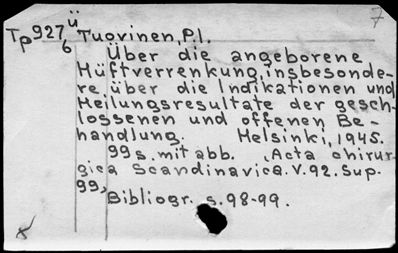 7
ü
Tp927 Tuovinen, P.I.
6 Über die angeborene
Hüftverrenkung, insbesonde-
re über die Indikationen und
Heilungsresultate der gesch-
lossenen und offenen Be-
handlung. Helsinki, 1945.
99 s. mit abb. (Acta chirur-
gica Scandinavica. V. 92. Sup.
99)
Bibliogr. s. 98-99.